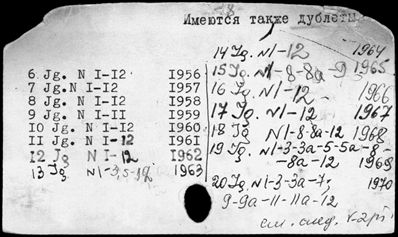 Имеются также дублеты
6 Jg. N I-I2 I956
7 Jg. N I-I2 I957
8 Jg. N I-I2 I958
9 Jg. N I-II I959
IO Jg. N I-I2 I960
II Jg. N I-12 I96I
I2 Jg N I-12 I962
13 Jg N1-3,5-12 1963
14 Jg. N1-12 1964
15 Jg. N1-8-8a-9 1965
16 Jg. N1-12 1966
17 Jg. N1-12 1967
18 Jg N1-8-8a-12 1968
19 Jg. N1-3-3a-5-5a-8-
-8a-12 1969
20 Jg. N1-3-3a-7; 1970
9-9a-11-11a-12
см. след.